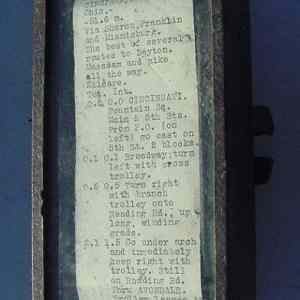 Ohio.-
-51.6 m.
Via Sharon, Franklin
and Miamisburg.
The best of several
routes to Dayton.
Macadam and pike
all the way.
Mileage.
Tot. Int.
0.0 0.0 CINCINNATI.
Fountain Sq.
Main & 5th Sts.
From P.O. (on
left) go east on
5th St. 2 blocks.
0.1 0.1 Broadway; turn
left with cross
trolley.
0.6 0.5 Turn right
with branch
trolley onto
Reading Rd., up
long, winding
grade.
2.1 1.5 Go under arch
and immediately
keep right with
trolley. Still
on Reading Rd.
Thru AVONDALE.